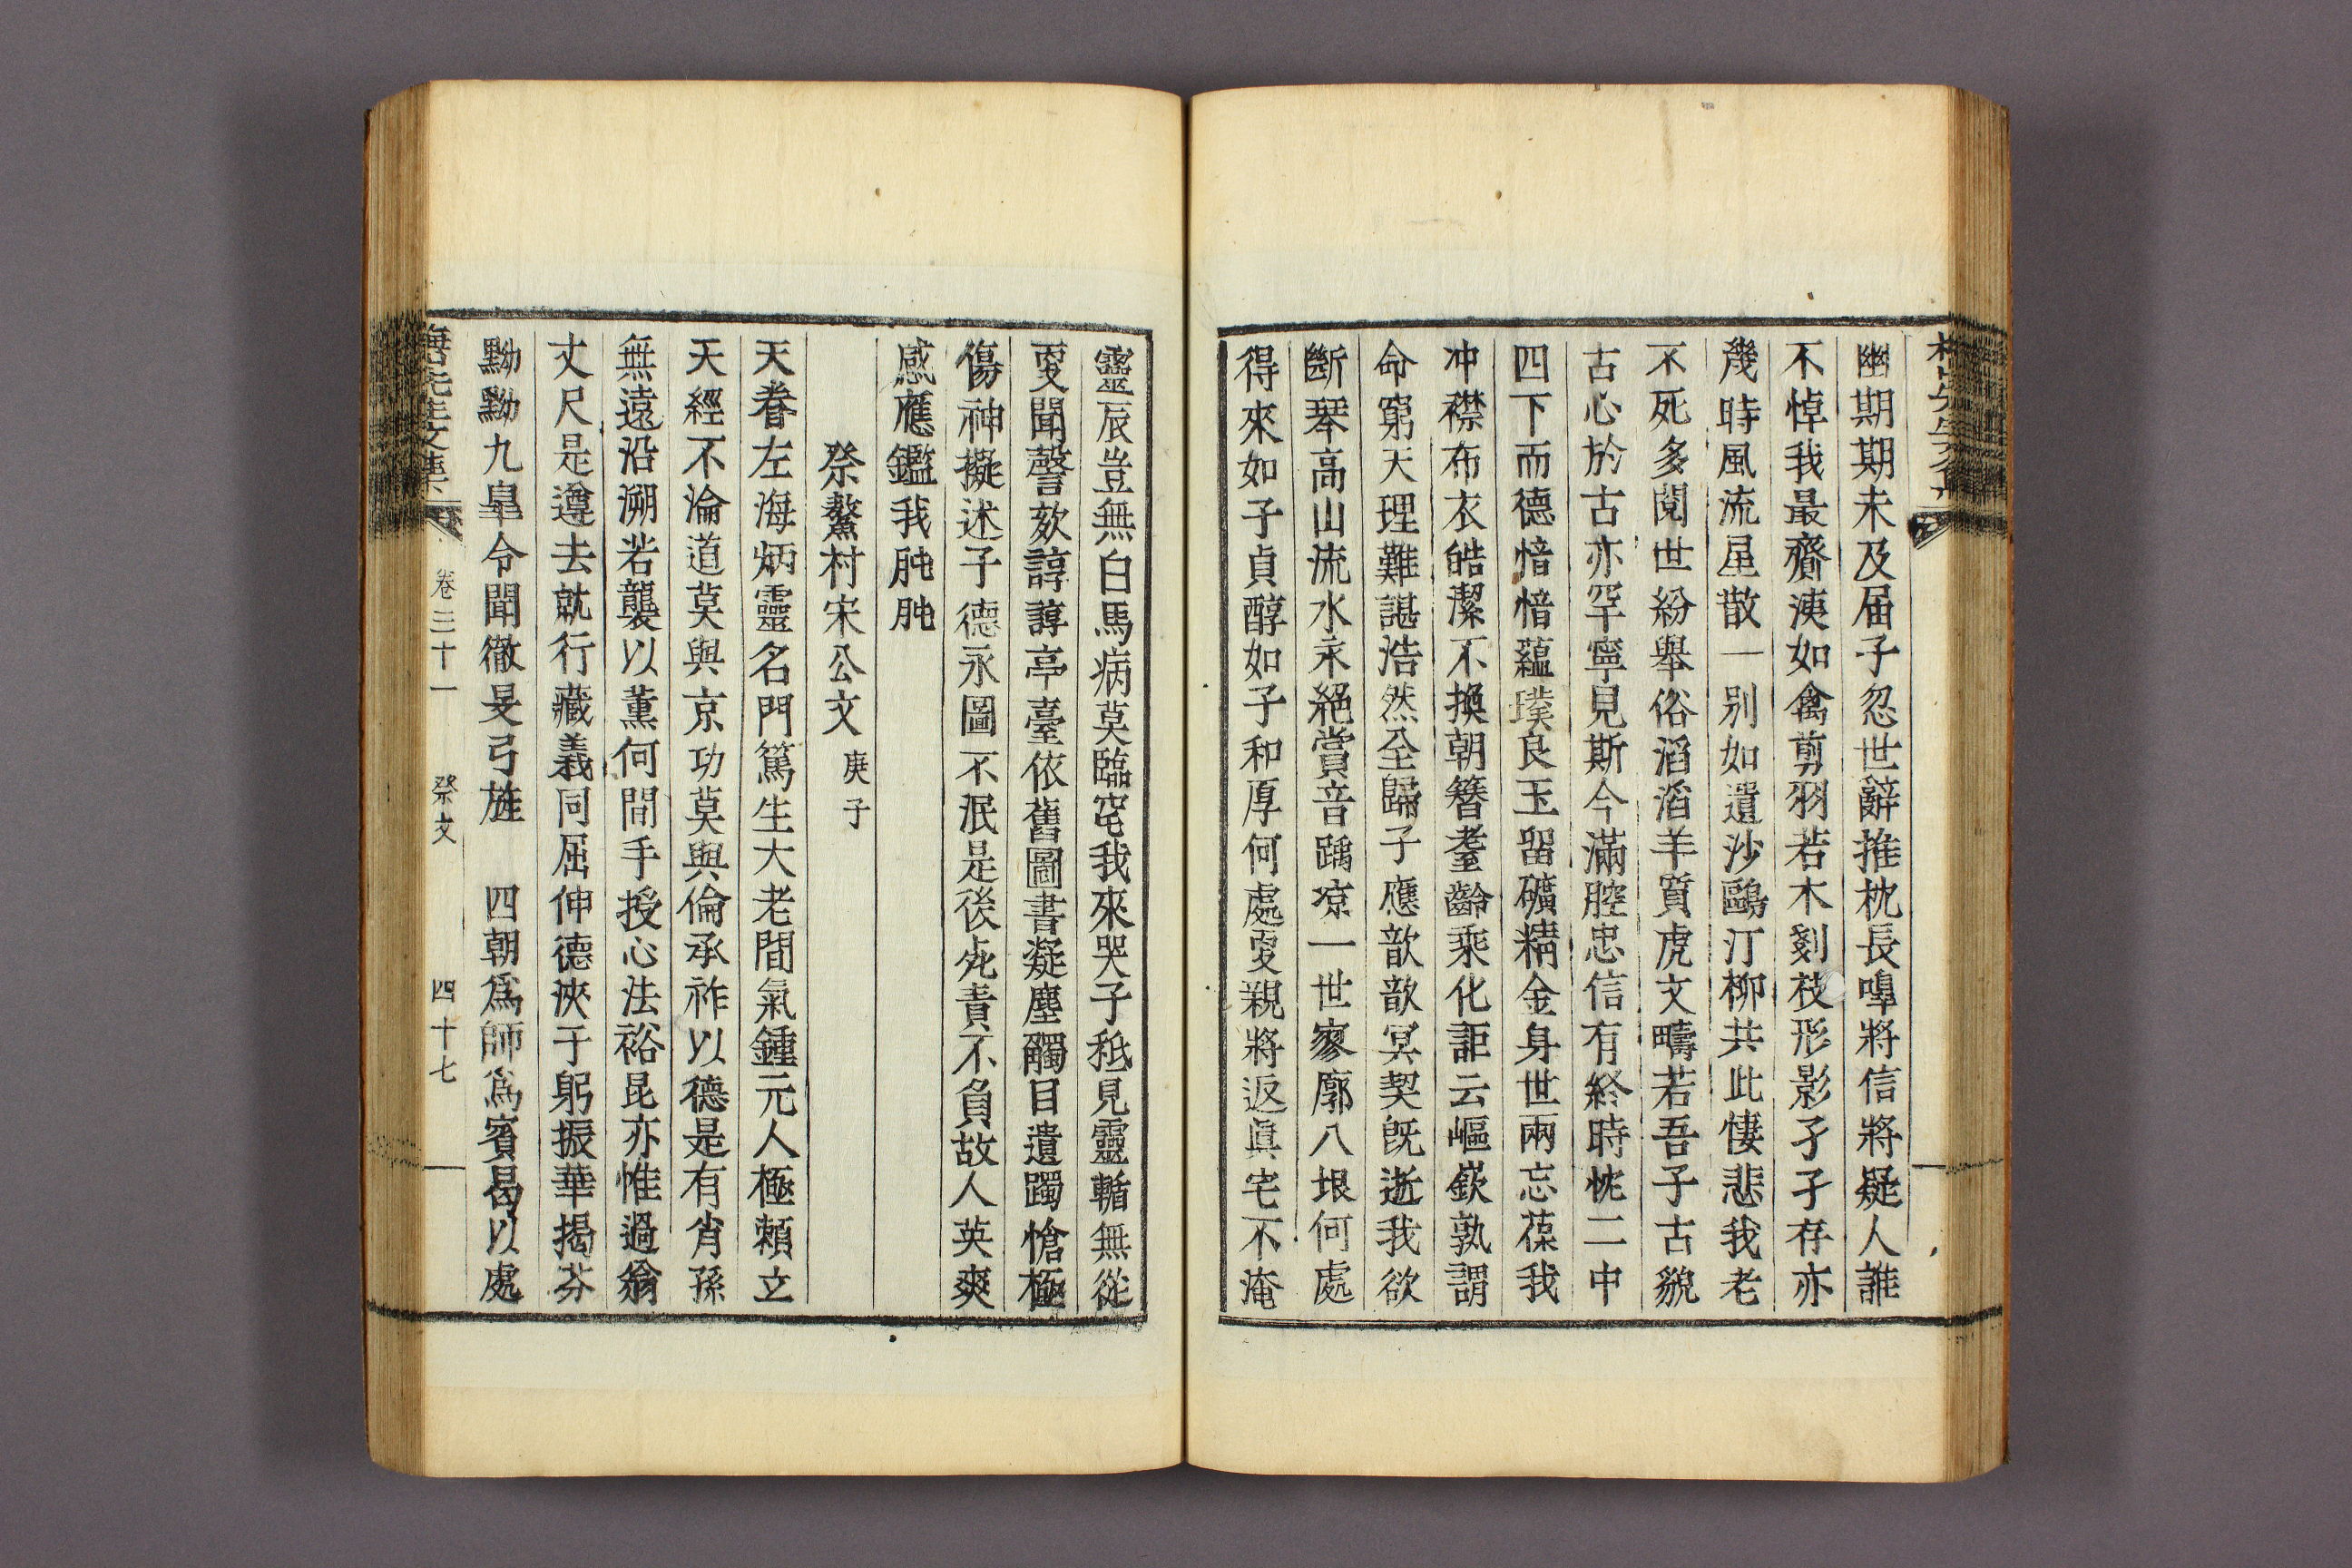 幽期期未及屆子忽世辭推枕長嘷將信將疑人誰
不悼我最齎洟如禽剪羽若木剗枝形影孑孑存亦
幾時風流星散一別如遺沙鷗汀柳共此悽悲我老
不死多閱世紛舉俗滔滔羊質虎文疇若吾子古貌
古心於古亦罕寧見斯今滿腔忠信有終時恍二中
四下而德愔愔蘊璞良玉留礦精金身世兩忘葆我
冲襟布衣皓潔不換朝簪耋齡乘化詎云嶇嶔孰謂
命窮天理難諶浩然全歸子應歆歆冥契旣逝我欲
斷琴高山流水永絕賞音踽凉一世寥廓八垠何處
得來如子貞醇如子和厚何處更親將返眞宅不淹
靈辰豈無白馬病莫臨窀我來哭子秪見靈輴無從
更聞謦欬諄諄亭臺依舊圖書凝塵觸目遺躅愴極
傷神擬述子德永圖不泯是後死責不負故人英爽
感應鑑我肫肫
祭鰲村宋公文 庚子
天眷左海炳靈名門篤生大老間氣鍾元人極賴立
天經不淪道莫與京功莫與倫承祚以德是有肖孫
無遠沿溯若襲以薰何間手授心法裕昆亦惟過翁
丈尺是遵去就行藏義同屈伸德浹于躬振華揭芬
黝黝九皐令聞徹旻弓旌 四朝爲師爲賓曷以處
先生文集 卷三十一 祭文 四十七